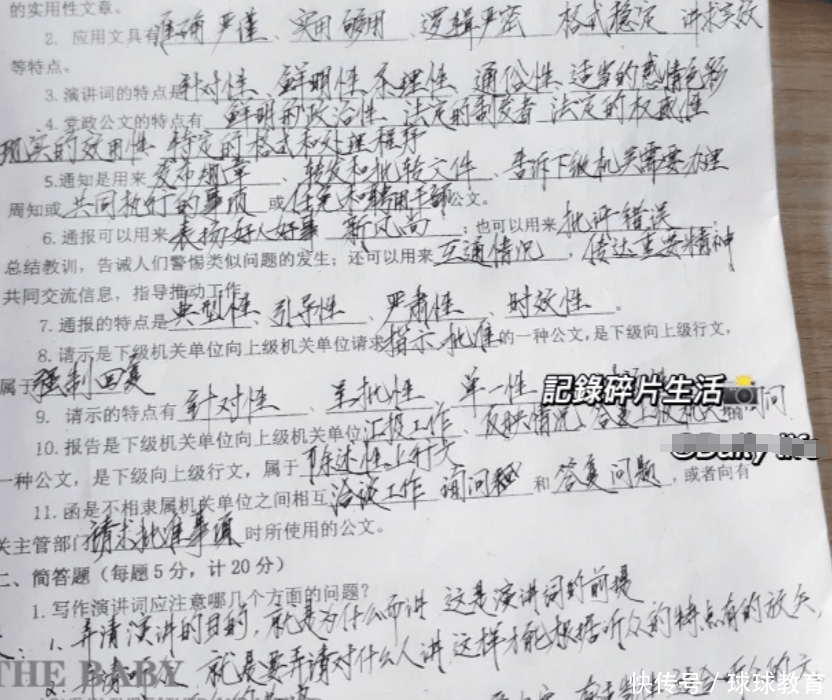 的实用性文章。
2. 应用文具有准确严谨、实用够用、逻辑严密 格式稳定 讲求实效
等特点。
3. 演讲词的特点是针对性、鲜明性、条理性、通俗性、适当的感情色彩
4. 党政公文的特点有鲜明的政治性、法定的制发者 法定的权威性
现实的效用性 特定的格式和处理程序
5.通知是用来发布规章、转发和批转文件、告诉下级机关需要办理
周知或共同执行的事项或任免和聘用干部公文。
6.通报可以用来表扬好人好事 新风尚;也可以用来批评错误,
总结教训，告诫人们警惕类似问题的发生；还可以用来互通情况，传达重要精神
共同交流信息，指导推动工作
7. 通报的特点是典型性、引导性、严肃性、时效性。
8. 请示是下级机关单位向上级机关单位请求指示 批准的一种公文，是下级向上级行文，
属于强制回复
9. 请示的特点有针对性、呈批性、单一性
記錄碎片生活
10. 报告是下级机关单位向上级机关单位汇报工作、反映情况、答复上级机关询问
一种公文，是下级向上级行文，属于陈述性上行文
11. 函是不相隶属机关单位之间相互洽谈工作 询问和答复问题，或者向有
关主管部门请求批准事项时所使用的公文。
二、简答题（每题5分，计20分）
1. 写作演讲词应注意哪几个方面的问题？
1. 弄清演讲的目的，就是为什么而讲 这是演讲词的前提
就是要弄清对什么人讲 这样才能根据听众的特点有的放矢,
THE BABY
快传号／球球教育